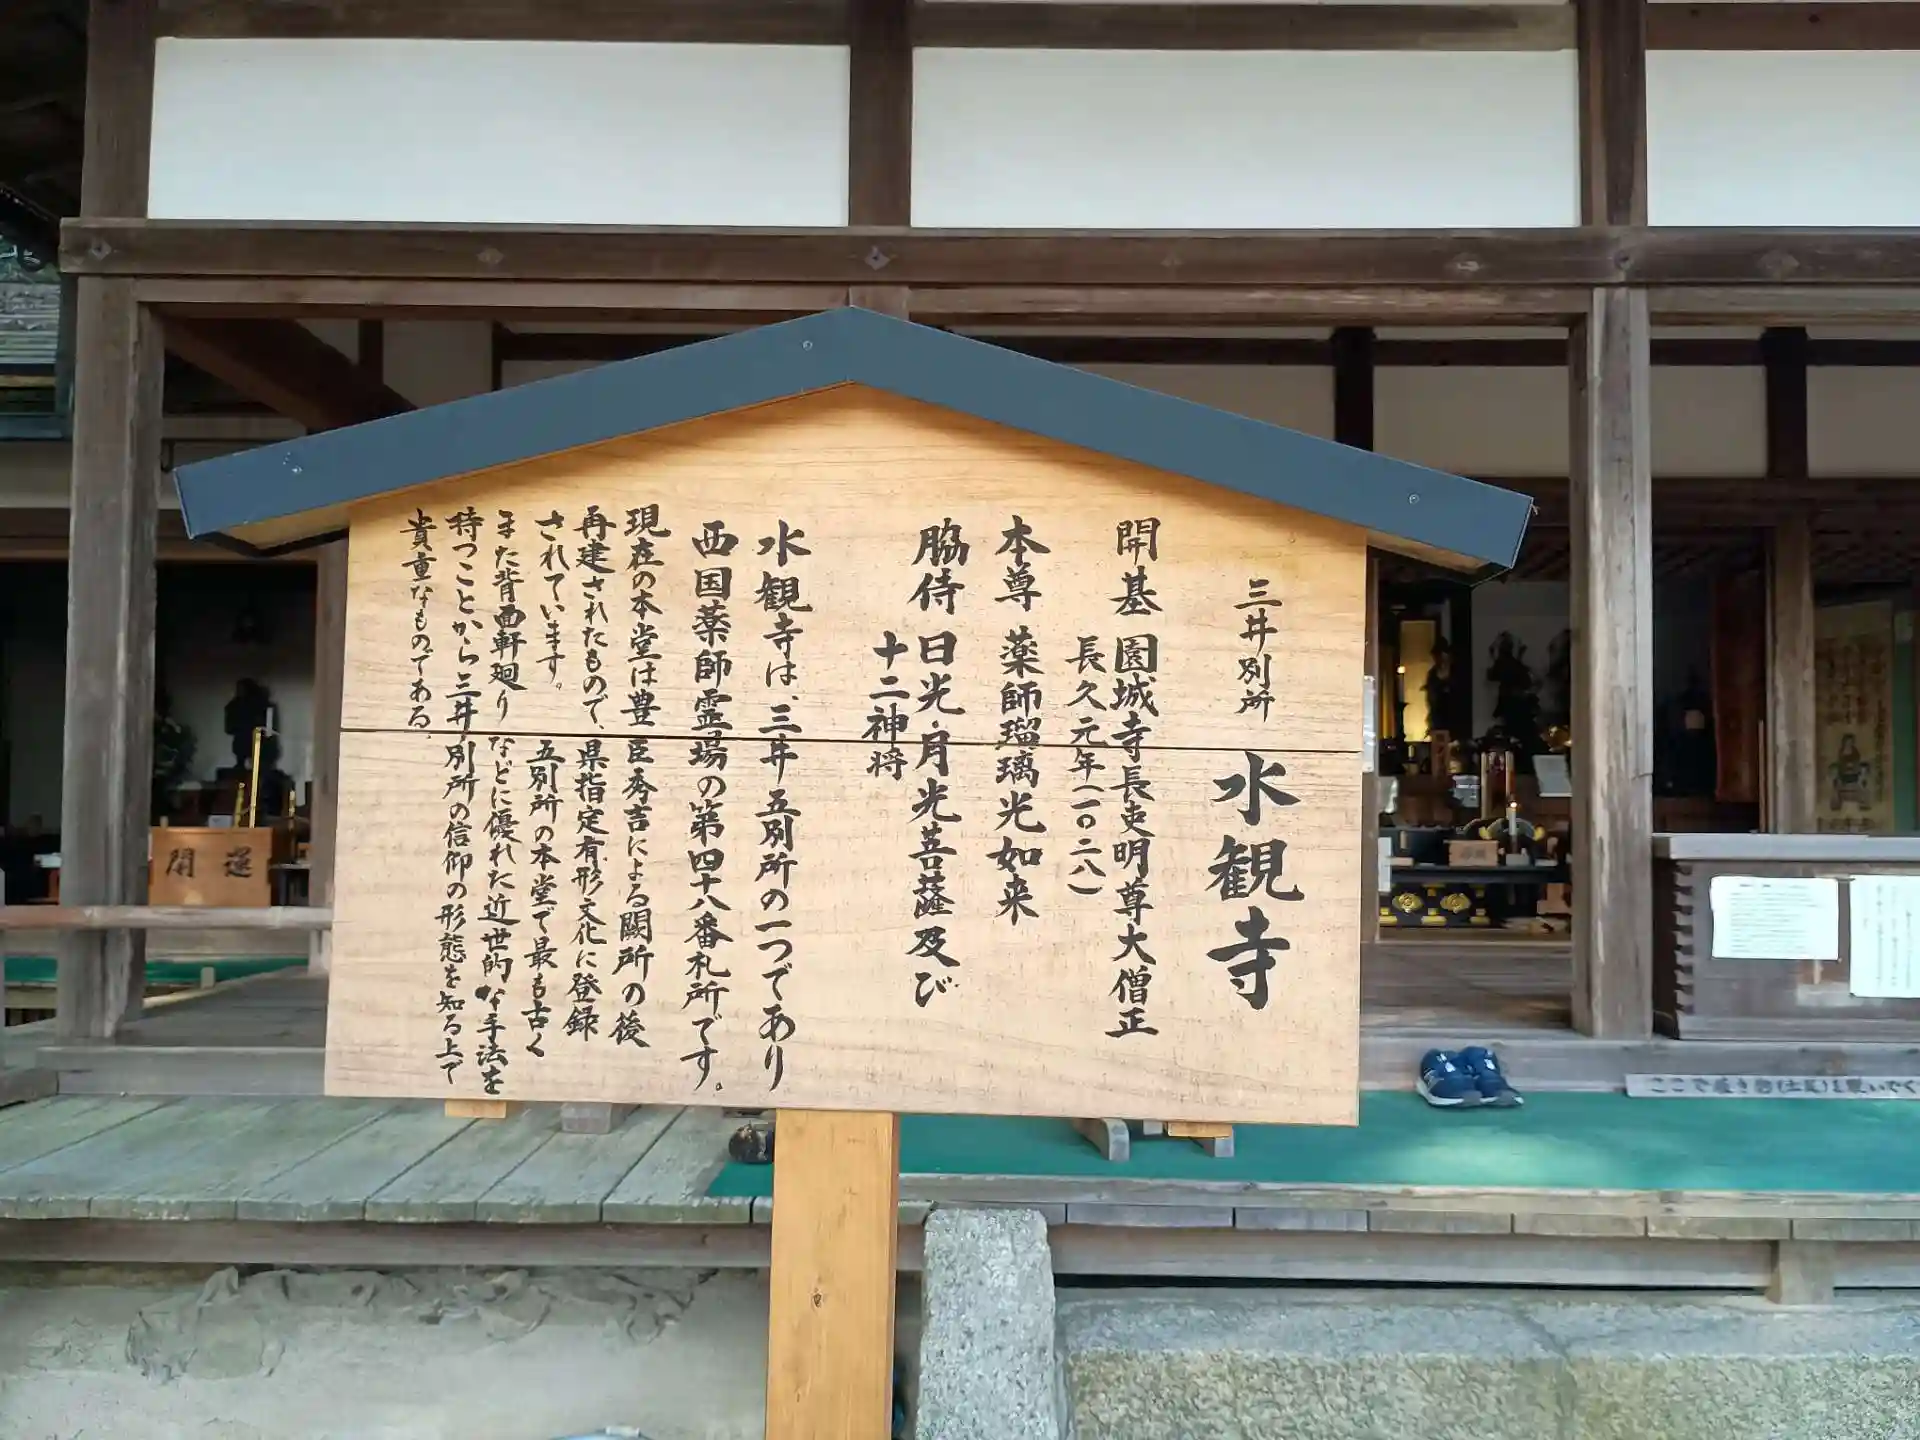 三井別所 水観寺
開基 園城寺長吏明尊大僧正
長久元年(一〇二八)
本尊 薬師瑠璃光如来
脇侍 日光・月光菩薩及び
十二神将
水観寺は、三井五別所の一つであり
西国薬師霊場の第四十八番札所です。
現在の本堂は豊臣秀吉による闕所の後
再建されたもので、県指定有形文化に登録
されています。 五別所の本堂で最も古く
また背面軒廻りなどに優れた近世的な手法を
持つことから三井別所の信仰の形態を知る上で
貴重なものである。
開運
ここで履き物(土足)を脱いでく